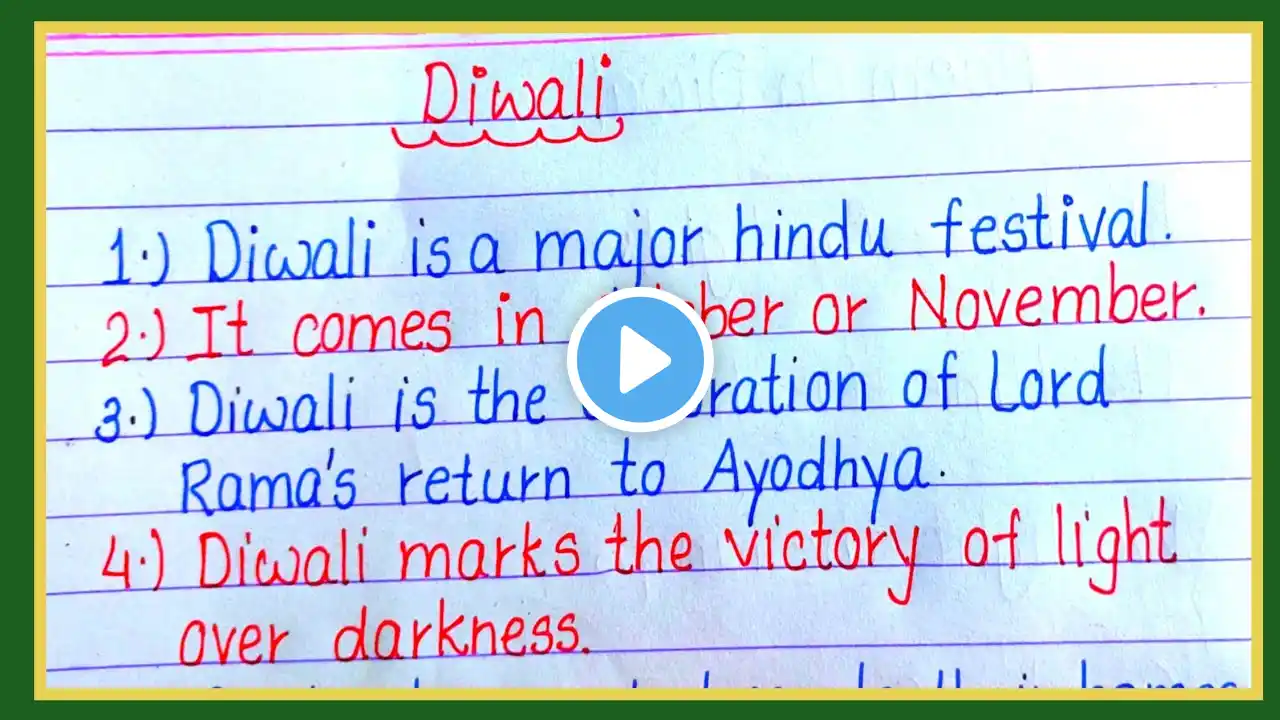 Diwali
1.) Diwali is a major hindu festival.
2.) It comes in or November.
3.) Diwali is the of Lord
Rama's return to Ayodhya.
4.) Diwali marks the victory of light
over darkness.